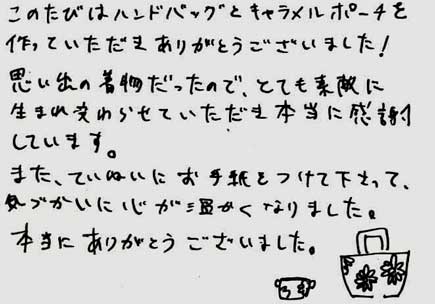 このたびはハンドバッグとキャラメルポーチを
作っていただきありがとうございました!
思い出の着物だったので、とても素敵に
生まれ変わらせていただき本当に感謝
しています。
また、ていねいにお手紙をつけて下さって、
気づかいに心が温かくなりました。
本当にありがとうございました。